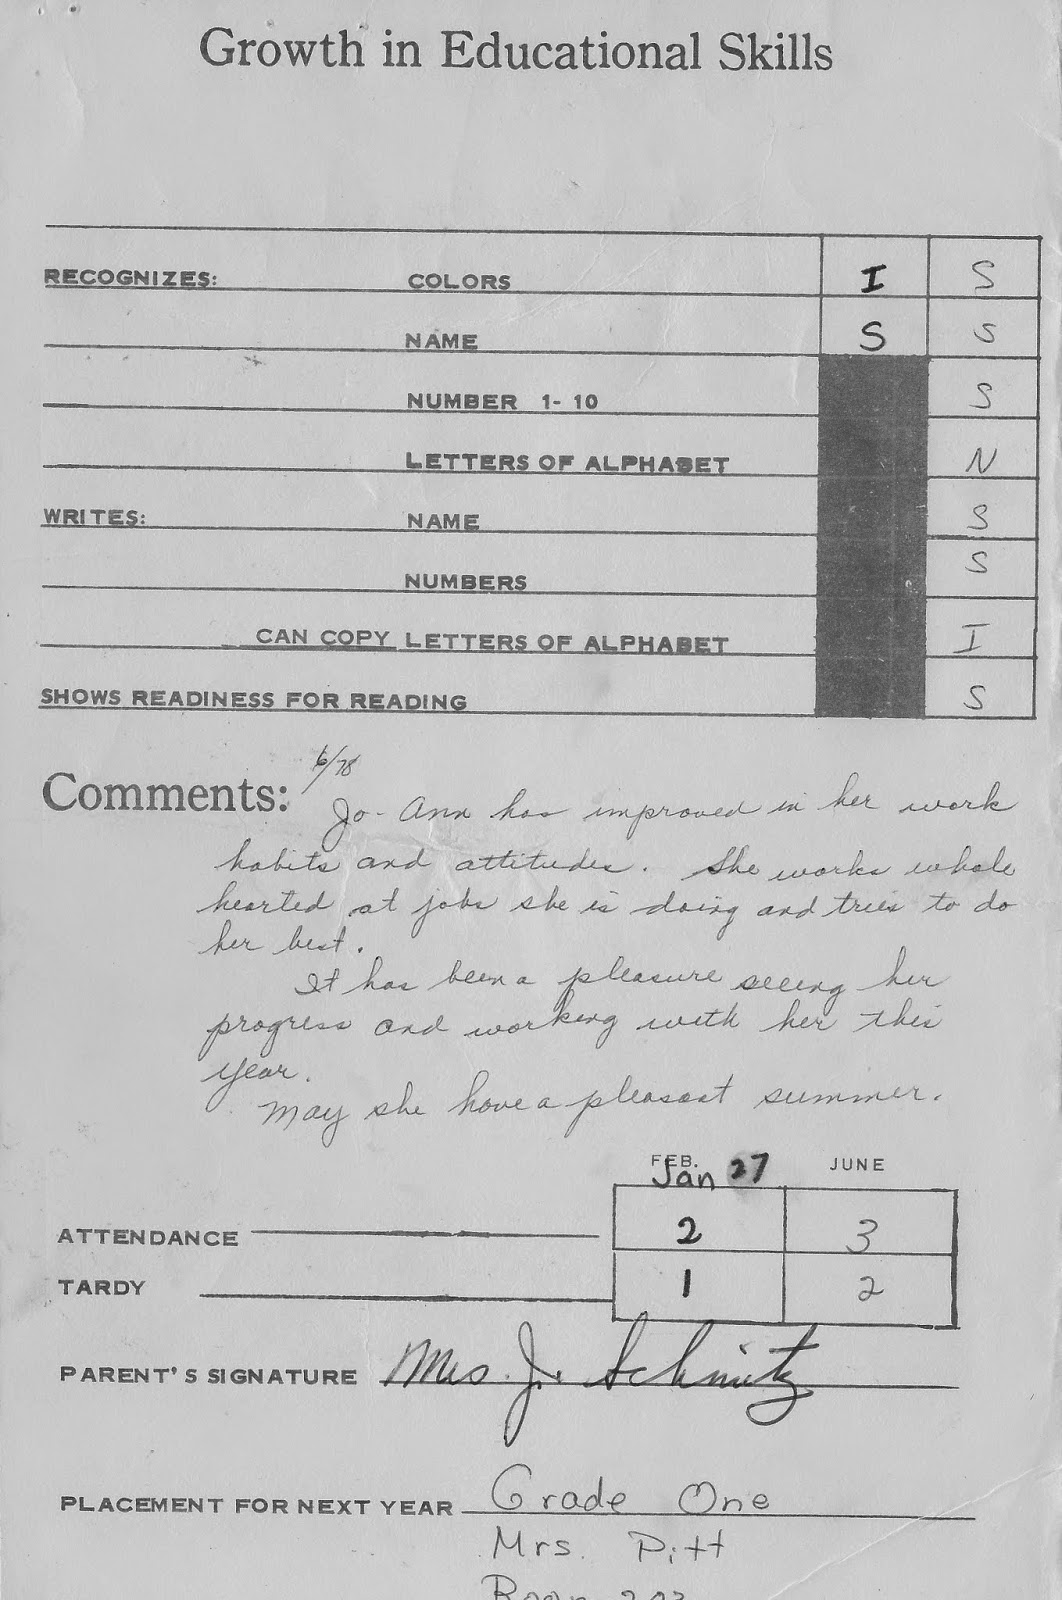 Growth in Educational Skills
RECOGNIZES: COLORS I S
NAME S S
NUMBER 1- 10 S
LETTERS OF ALPHABET N
WRITES: NAME S
NUMBERS S
CAN COPY LETTERS OF ALPHABET I
SHOWS READINESS FOR READING S
Comments: 6/78
Jo-Ann has improved in her work
habits and attitudes. She works whole
hearted at jobs she is doing and tries to do
her best.
It has been a pleasure seeing her
progress and working with her this
year.
May she have a pleasant summer.
FEB. JUNE
Jan 27
ATTENDANCE 2 3
TARDY 1 2
PARENT'S SIGNATURE Mrs. J. Schmitz
PLACEMENT FOR NEXT YEAR Grade One
Mrs. Pitt
Room